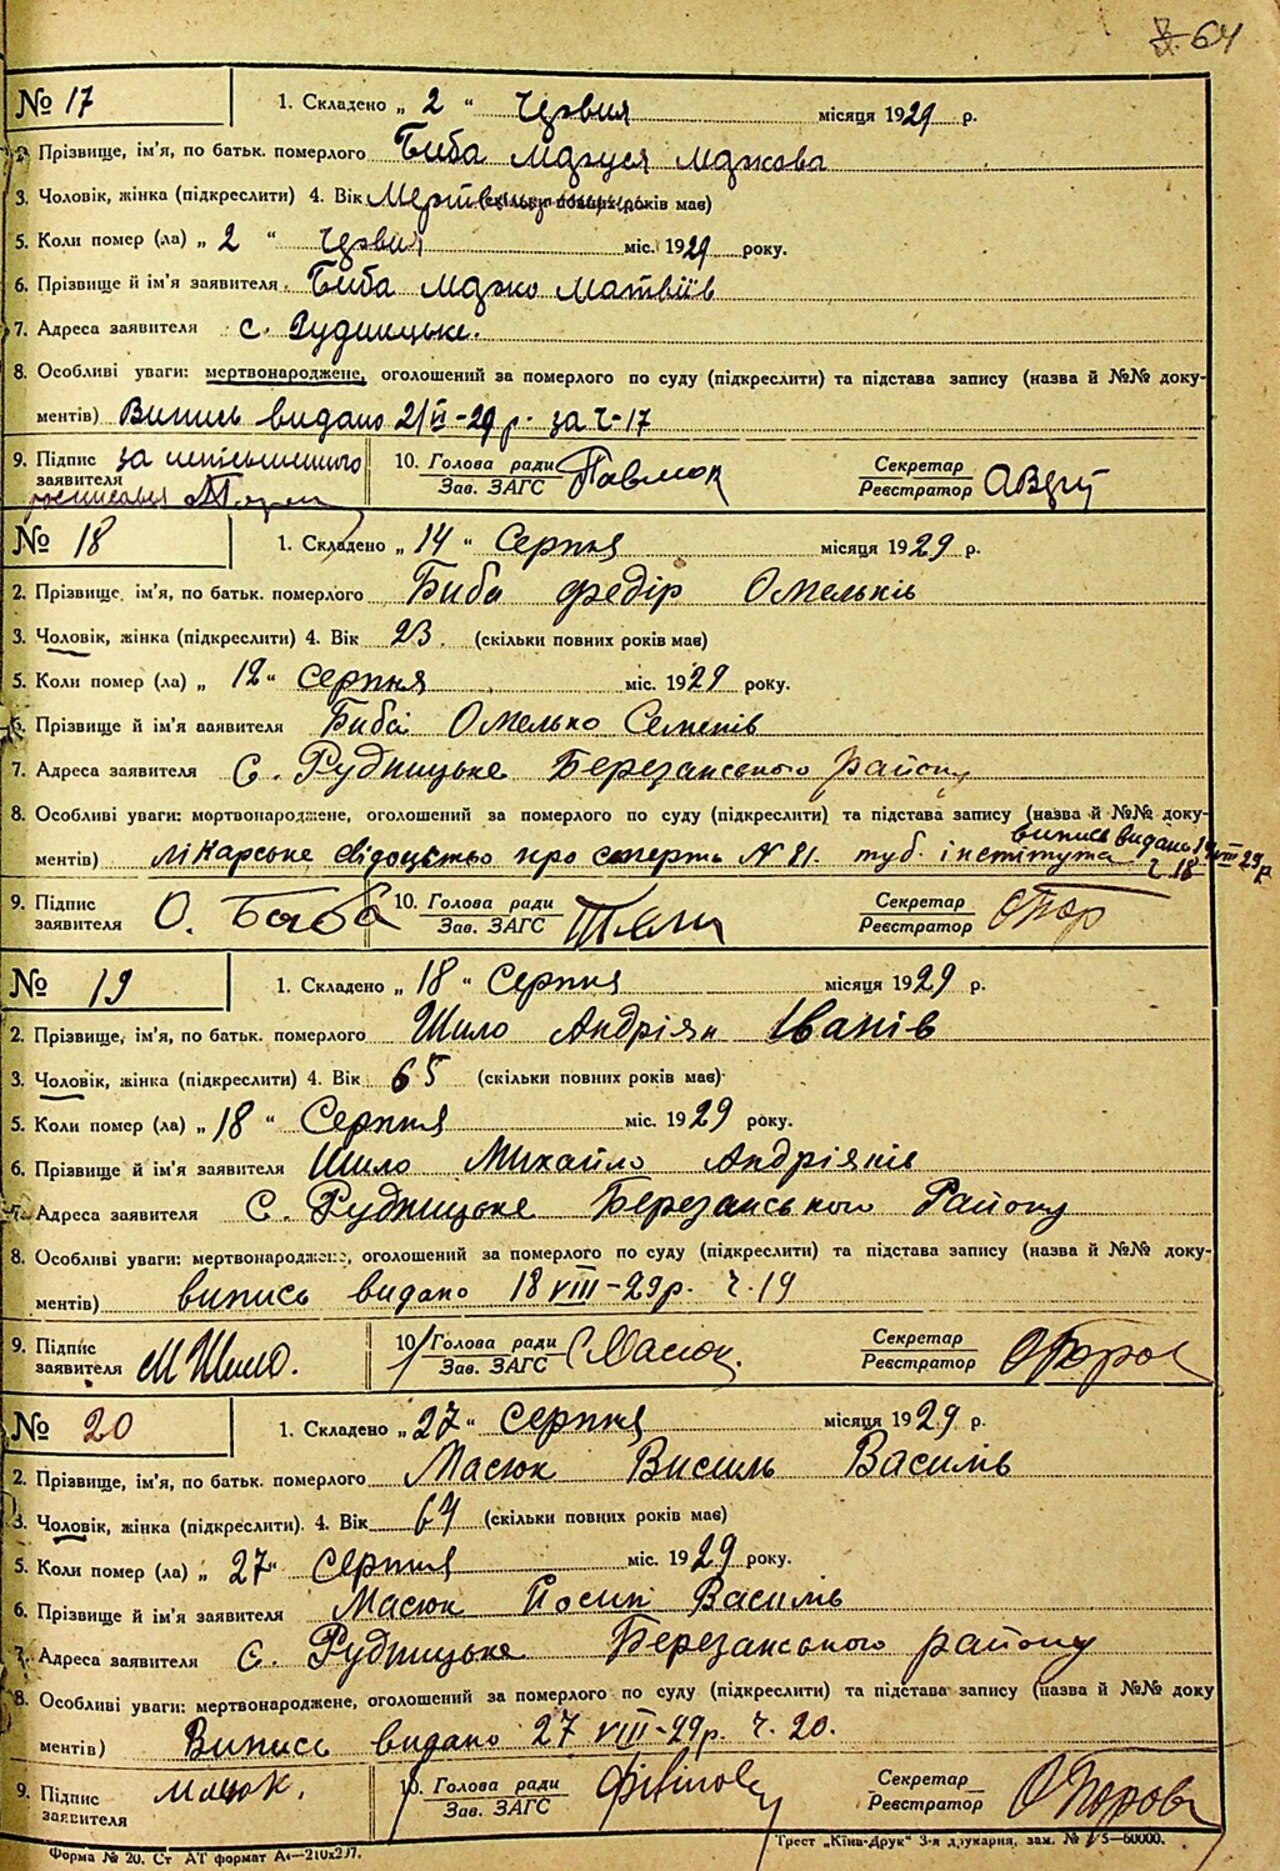 64
№ 17 1. Складено „ 2 “ Червня місяця 1929 р.
2. Прізвище, ім'я, по батьк. померлого Биба Маруся Маркова
3. Чоловік, жінка (підкреслити) 4. Вік (скільки повних років має)
5. Коли помер (ла) „ 2 “ Червня міс. 1929 року.
6. Прізвище й ім'я заявителя Биба Марко Матвіїв
7. Адреса заявителя с. Рудницьке.
8. Особливі уваги: мертвонароджене, оголошений за померлого по суду (підкреслити) та підстава запису (назва й №№ доку-
ментів) Випись видано 2/VI-29 р. за ч-17
9. Підпис заявителя за неписьменного 10. Голова ради Секретар
Зав. ЗАГС Реєстратор
№ 18 1. Складено „ 14 “ Серпня місяця 1929 р.
2. Прізвище, ім'я, по батьк. померлого Биба Федір Омельків
3. Чоловік, жінка (підкреслити) 4. Вік 23. (скільки повних років має)
5. Коли помер (ла) „ 12 “ Серпня міс. 1929 року.
6. Прізвище й ім'я заявителя Биба Омелько Семенів
7. Адреса заявителя С. Рудницьке Березанського району
8. Особливі уваги: мертвонароджене, оголошений за померлого по суду (підкреслити) та підстава запису (назва й №№ доку-
випись видано VIII 29 р
ментів) лікарське свідоцтво про смерть N 81. туб. інстітута ч 18
9. Підпис заявителя О. Баба 10. Голова ради Секретар
Зав. ЗАГС Реєстратор
№ 19 1. Складено „ 18 “ Серпня місяця 1929 р.
2. Прізвище, ім'я, по батьк. померлого Шило Андріян Іванів
3. Чоловік, жінка (підкреслити) 4. Вік 65 (скільки повних років має)
5. Коли помер (ла) „ 18 “ Серпня міс. 1929 року.
6. Прізвище й ім'я заявителя Шило Михайло Андріянів
7. Адреса заявителя С. Рудницьке Березанського Району
8. Особливі уваги: мертвонароджене, оголошений за померлого по суду (підкреслити) та підстава запису (назва й №№ доку-
ментів) випись видано 18 VIII-29р. ч. 19
9. Підпис заявителя М Шило. 10. Голова ради Масюк. Секретар
Зав. ЗАГС Реєстратор
№ 20 1. Складено „ 27 “ Серпня місяця 1929 р.
2. Прізвище, ім'я, по батьк. померлого Масюк Висиль Василів
3. Чоловік, жінка (підкреслити). 4. Вік 64 (скільки повних років має)
5. Коли помер (ла) „ 27 “ Серпня міс. 1929 року.
6. Прізвище й ім'я заявителя Масюк Йосип Василів
7. Адреса заявителя С. Рудницьке Березанського району
8. Особливі уваги: мертвонароджене, оголошений за померлого по суду (підкреслити) та підстава запису (назва й №№ доку
ментів) Випись видано 27 VIII-29р. ч. 20.
9. Підпис заявителя Масюк. 10. Голова ради Секретар
Зав. ЗАГС Реєстратор
Трест „Київ-Друк“ 3-я друкарня, зам. №
Форма № 20. Ст АТ формат А4—210х297.